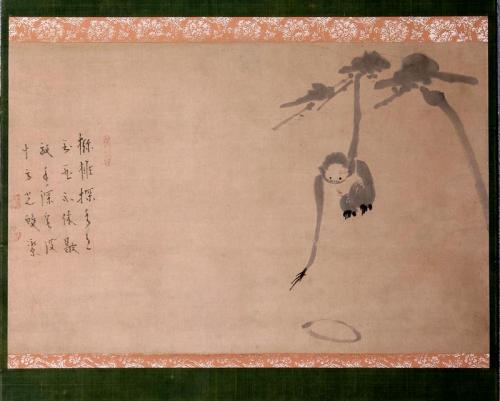 獼猴探水月
到死不休歇
放手深泉没
十方光皓潔